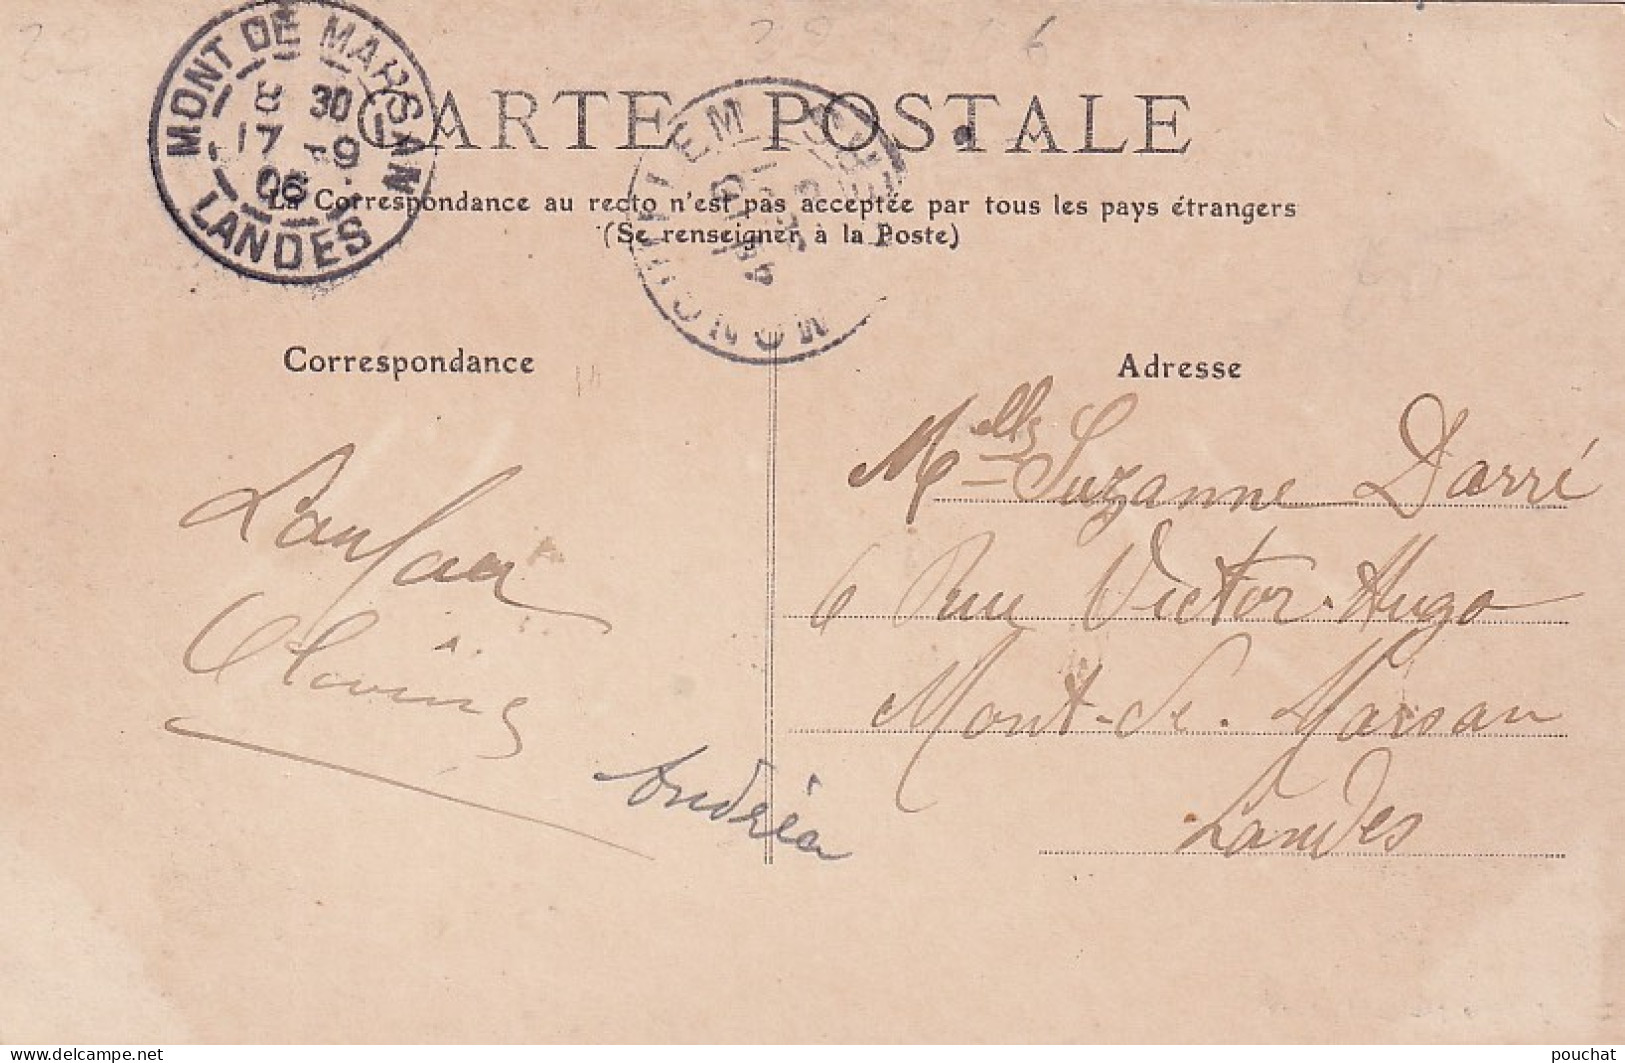 MONT DE MARSAN
8 30
17 -9
06
LANDES
CARTE POSTALE
La Correspondance au recto n'est pas acceptée par tous les pays étrangers
(Se renseigner à la Poste)
Correspondance
Adresse
Mlle Suzanne Darré
6 Rue Victor Hugo
Mont-de-Marsan
Landes
Andréa
pouchat
delcampe.net